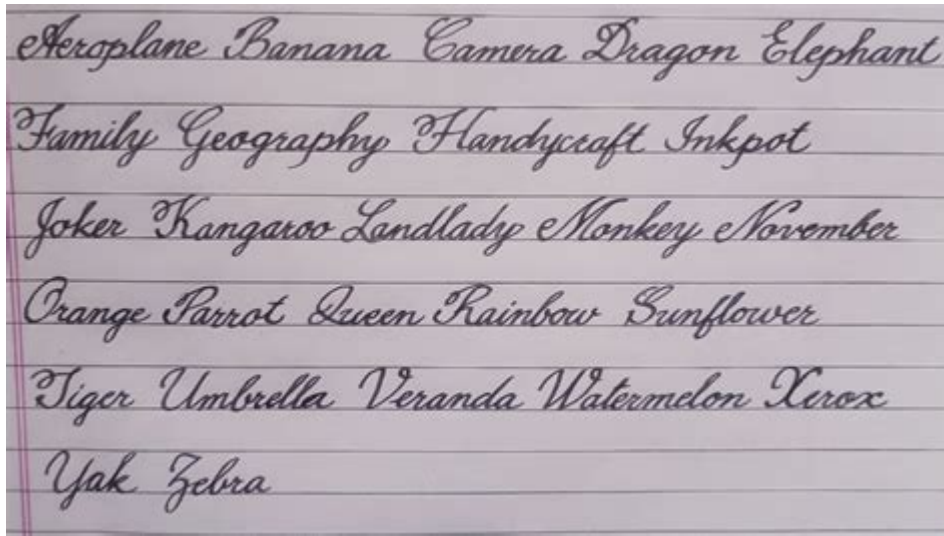 Aeroplane Banana Camera Dragon Elephant
Family Geography Handycraft Inkpot
Joker Kangaroo Landlady Monkey November
Orange Parrot Queen Rainbow Sunflower
Tiger Umbrella Veranda Watermelon Xerox
Yak Zebra